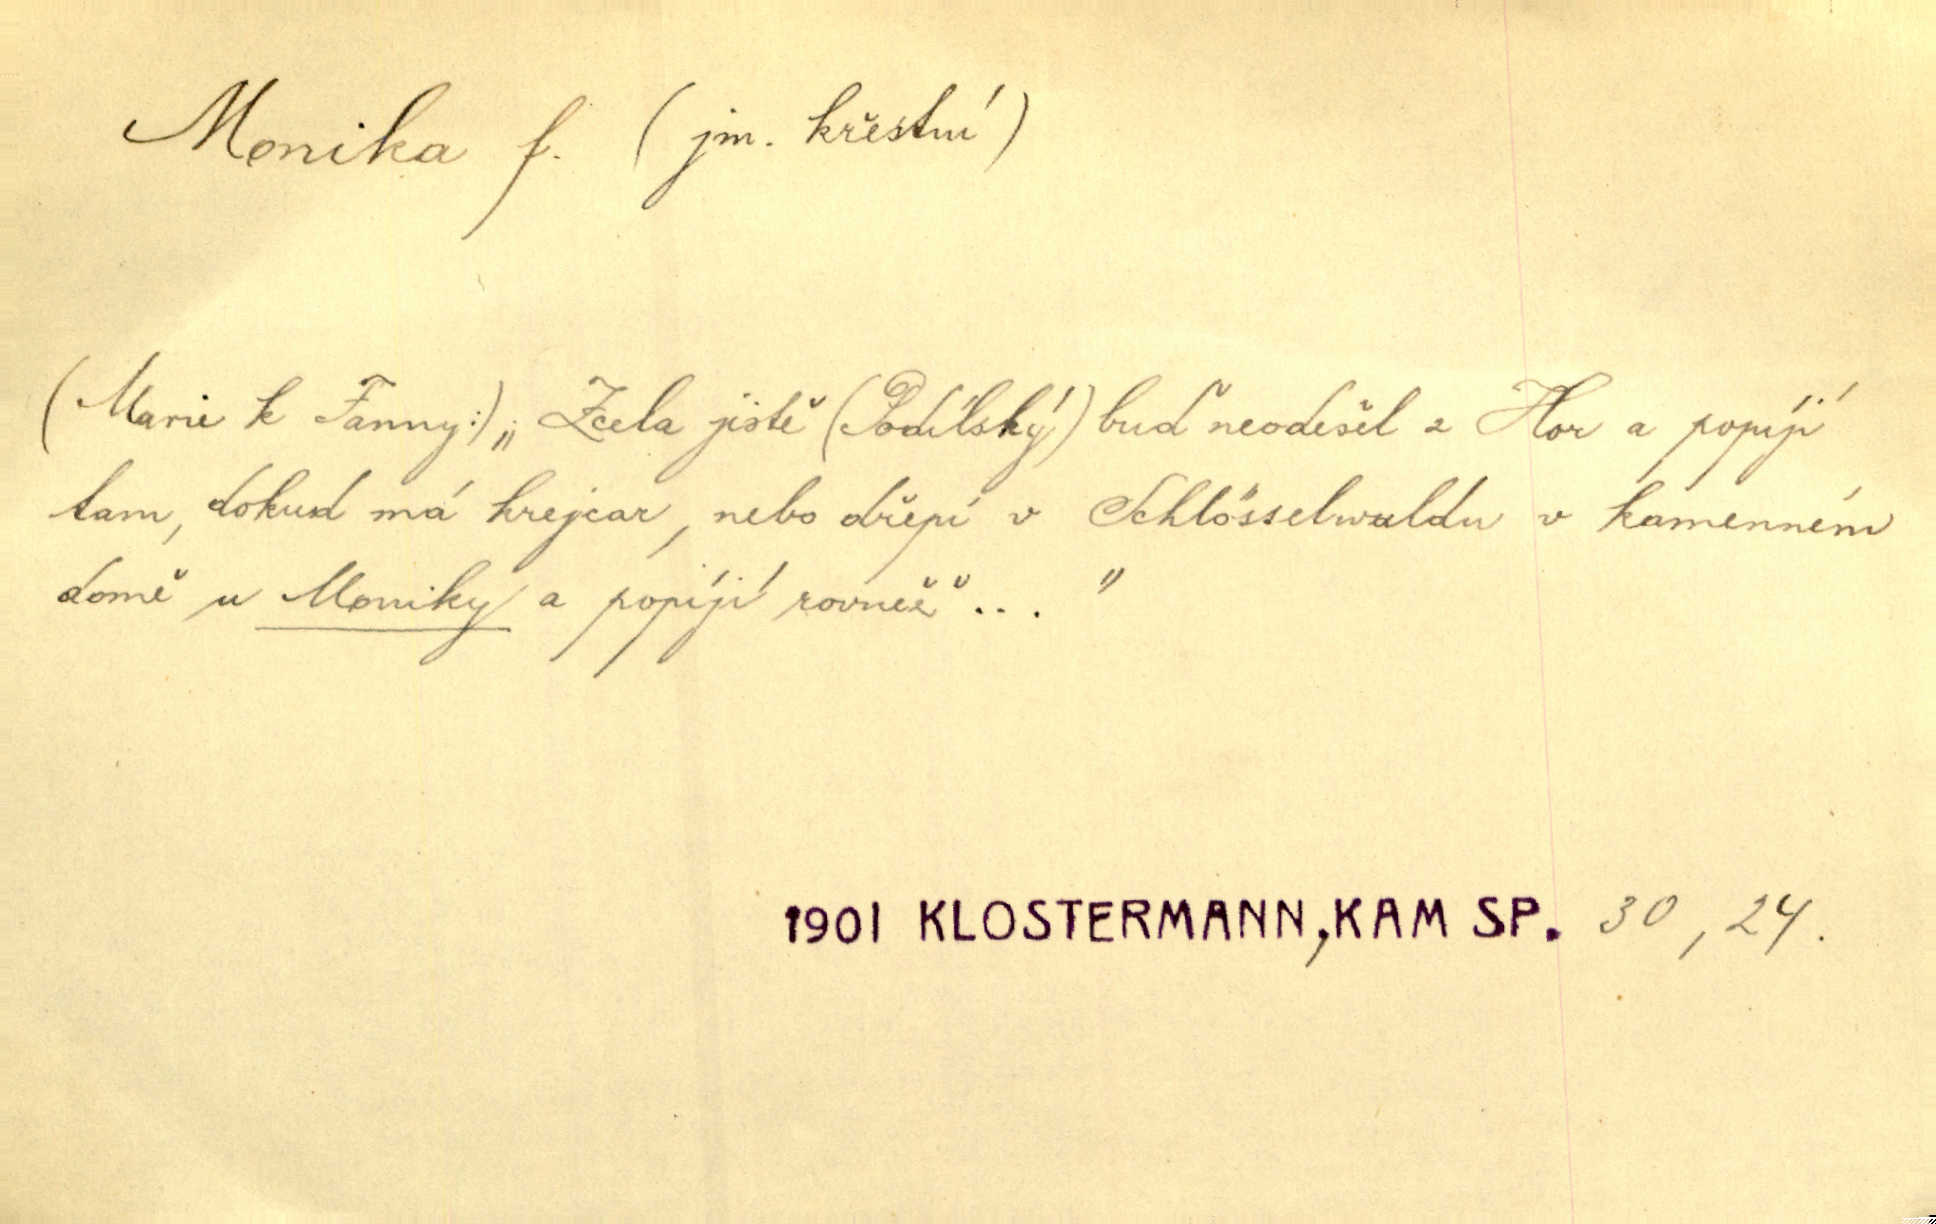 Monika f. (jm. křestní)
(Marie k Fanny:) „Zcela jistě (Podilský) buď neodešel z Hor a popíjí
tam, dokud má krejcar, nebo dřepí v Schlösselwaldu v kamenném
domě u Moniky a popíjí rovněž... "
1901 KLOSTERMANN, KAM SP. 30, 24.